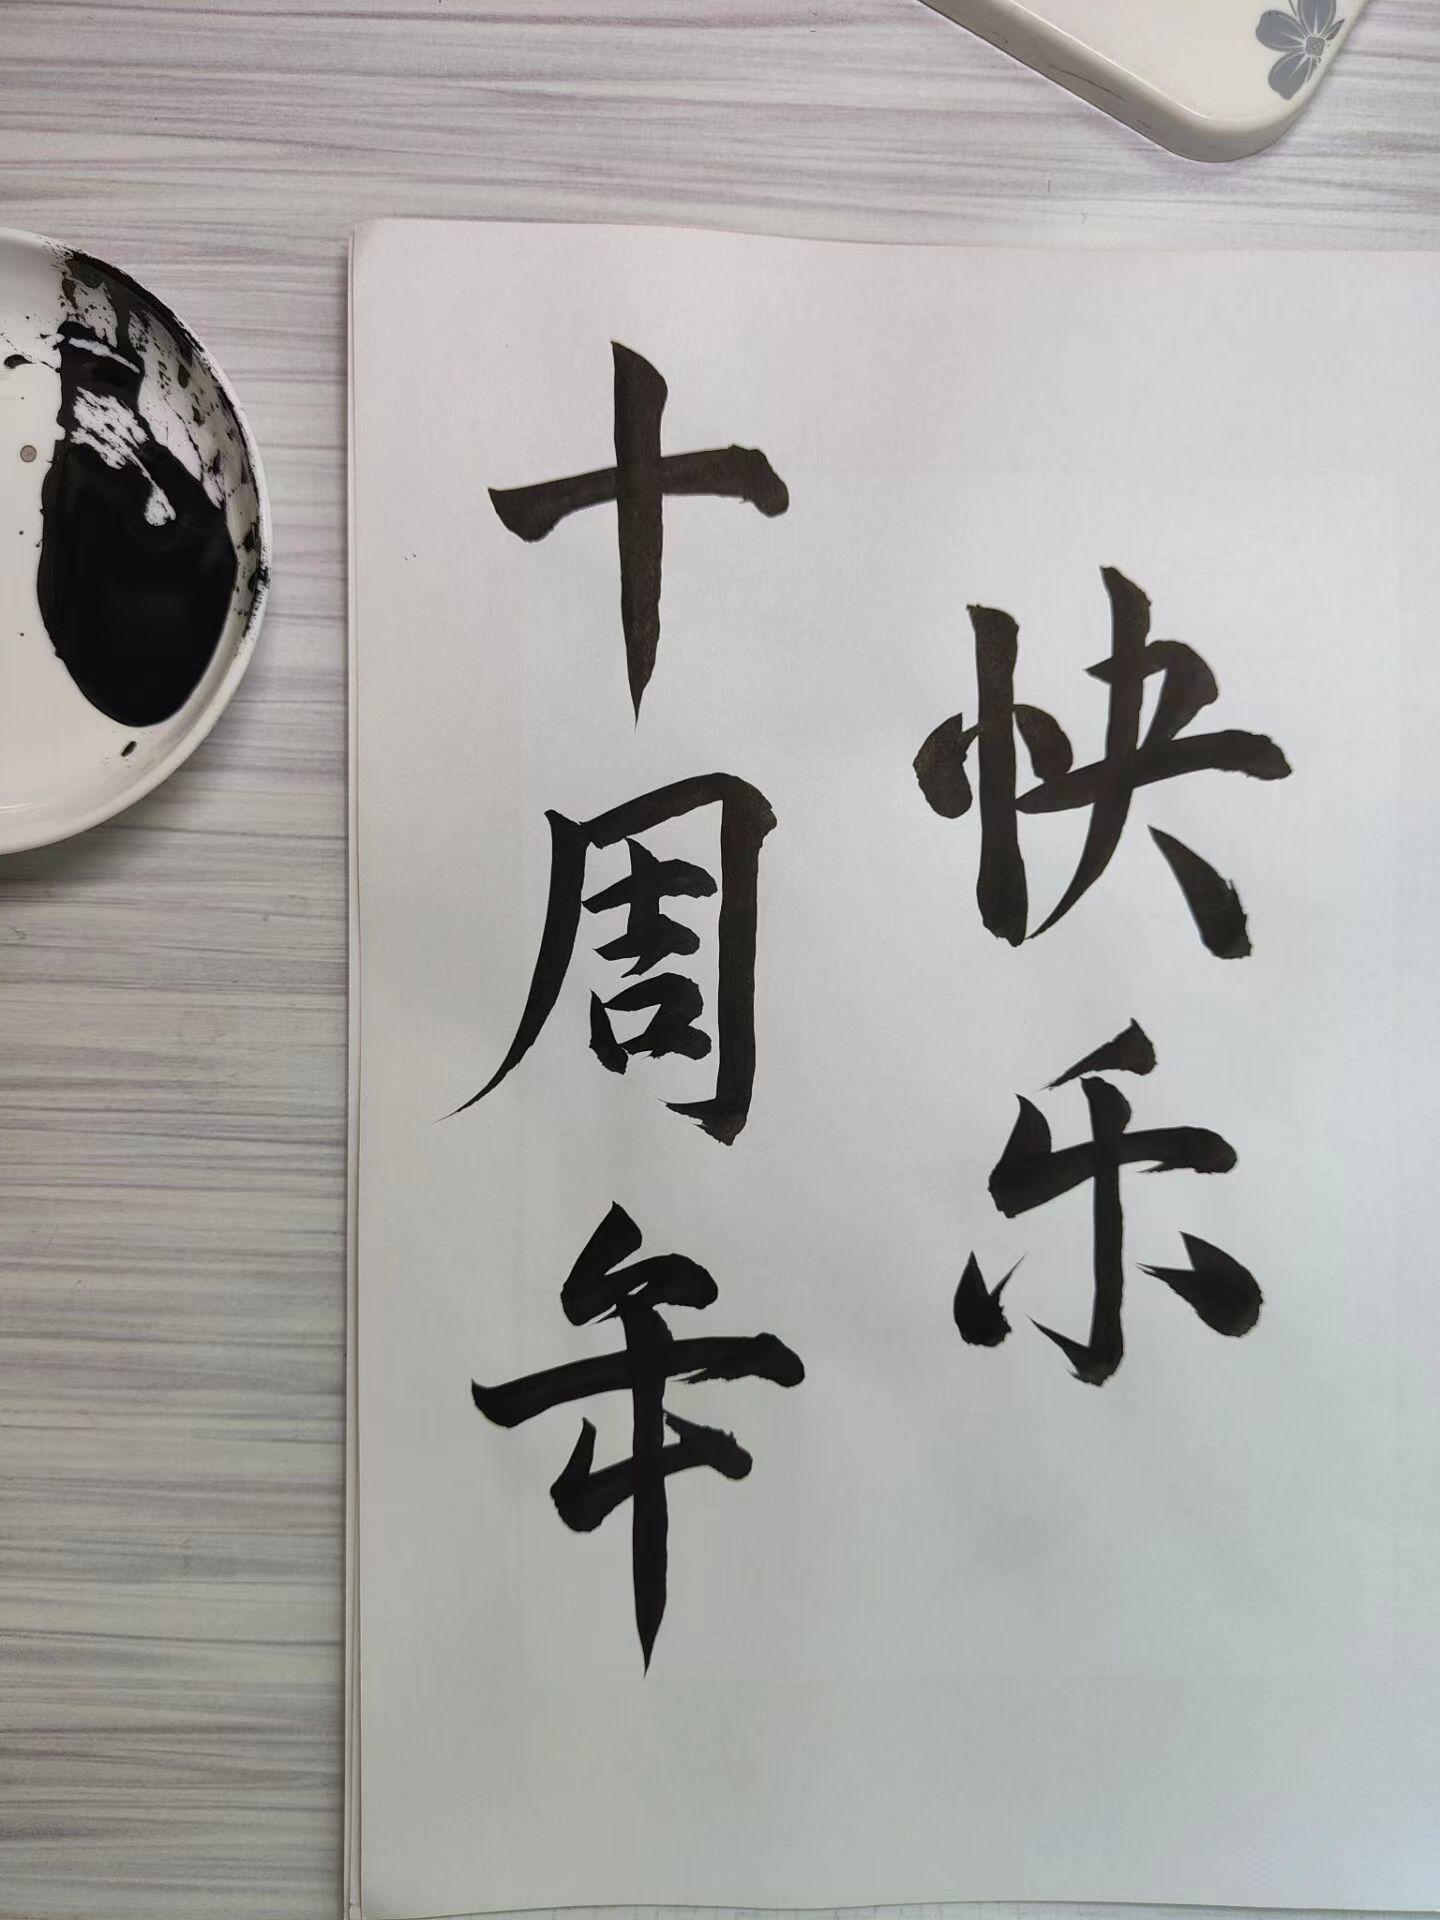 十周年
快乐